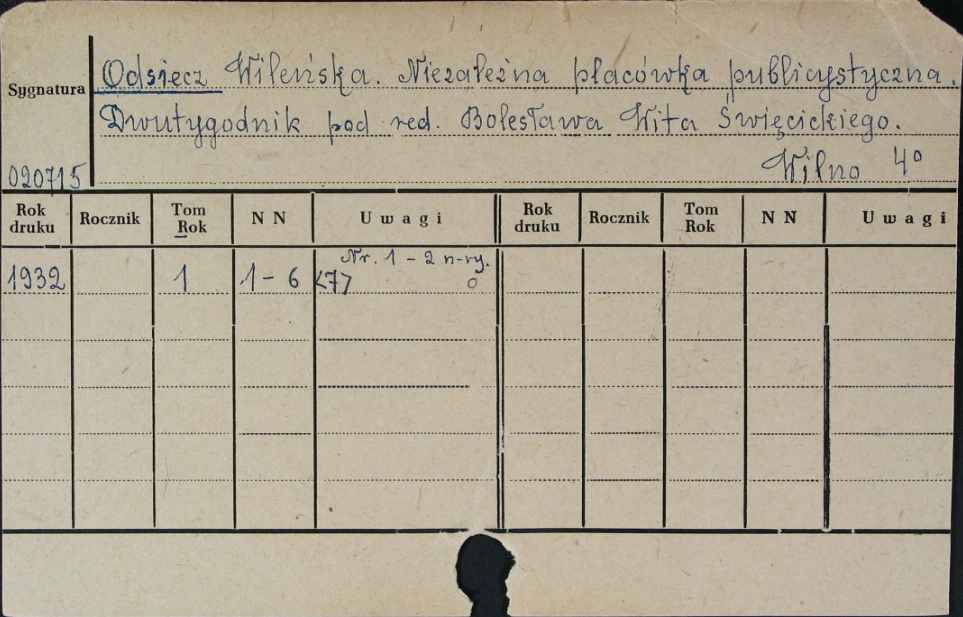 Sygnatura
Odsiecz Wileńska. Niezależna placówka publicystyczna.
Dwutygodnik pod red. Bolesława Wita Święcickiego.
020715
Wilno 4°
Rok druku Rocznik Tom Rok N N Uwagi Rok druku Rocznik Tom Rok N N Uwagi
Nr. 1 - 2 n-ry.
1932 1 1 - 6 <7>